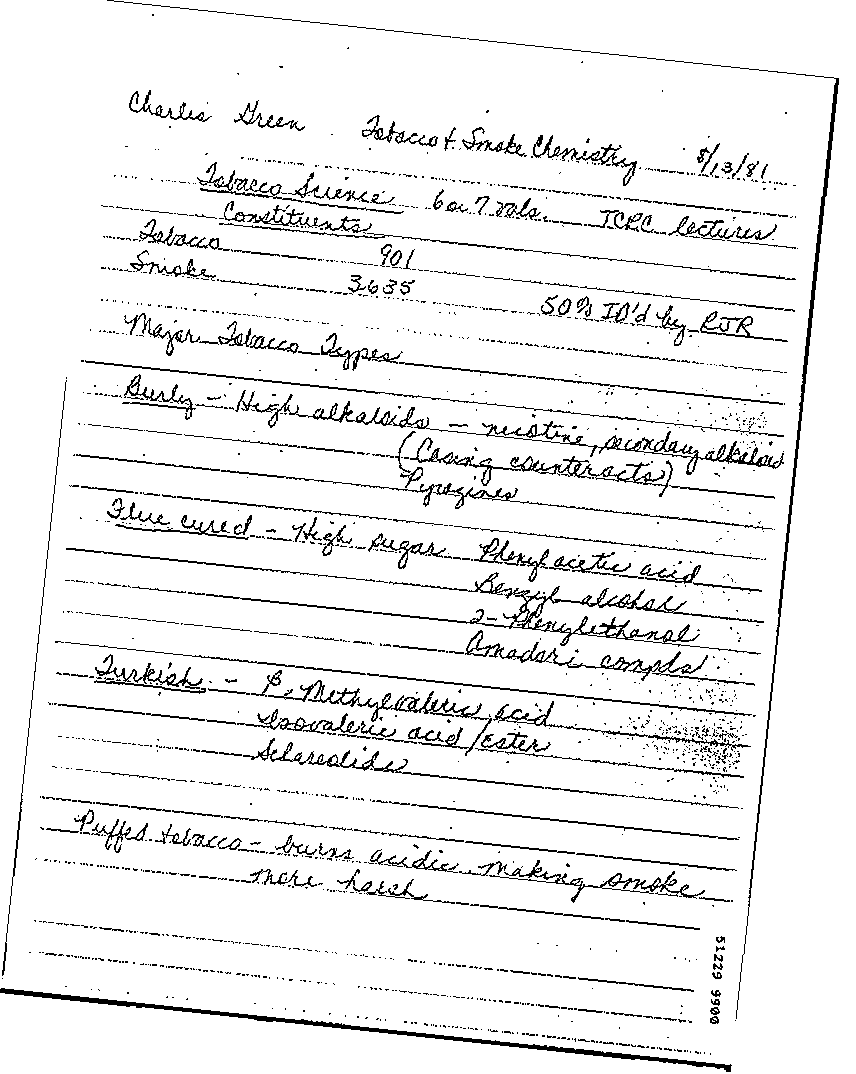 Charlie Green Tobacco & Smoke Chemistry 8/13/81
Tobacco Science 6 or 7 vols. TCRC lectures
Constituents
Tobacco 901
Smoke 3635 50% ID'd by RJR
Major Tobacco Types
Burly - High alkaloids - nicotine, secondary alkaloid
(Casing counteracts)
Pyrazines
Flue cured - High sugar Phenylacetic acid
Benzyl alcohol
2-Phenylethanol
Amadori compds
Turkish - β-Methylvaleric acid
Isovaleric acid/ester
Sclareolide
Puffed tobacco - burns acidic making smoke
more harsh
51229 9900